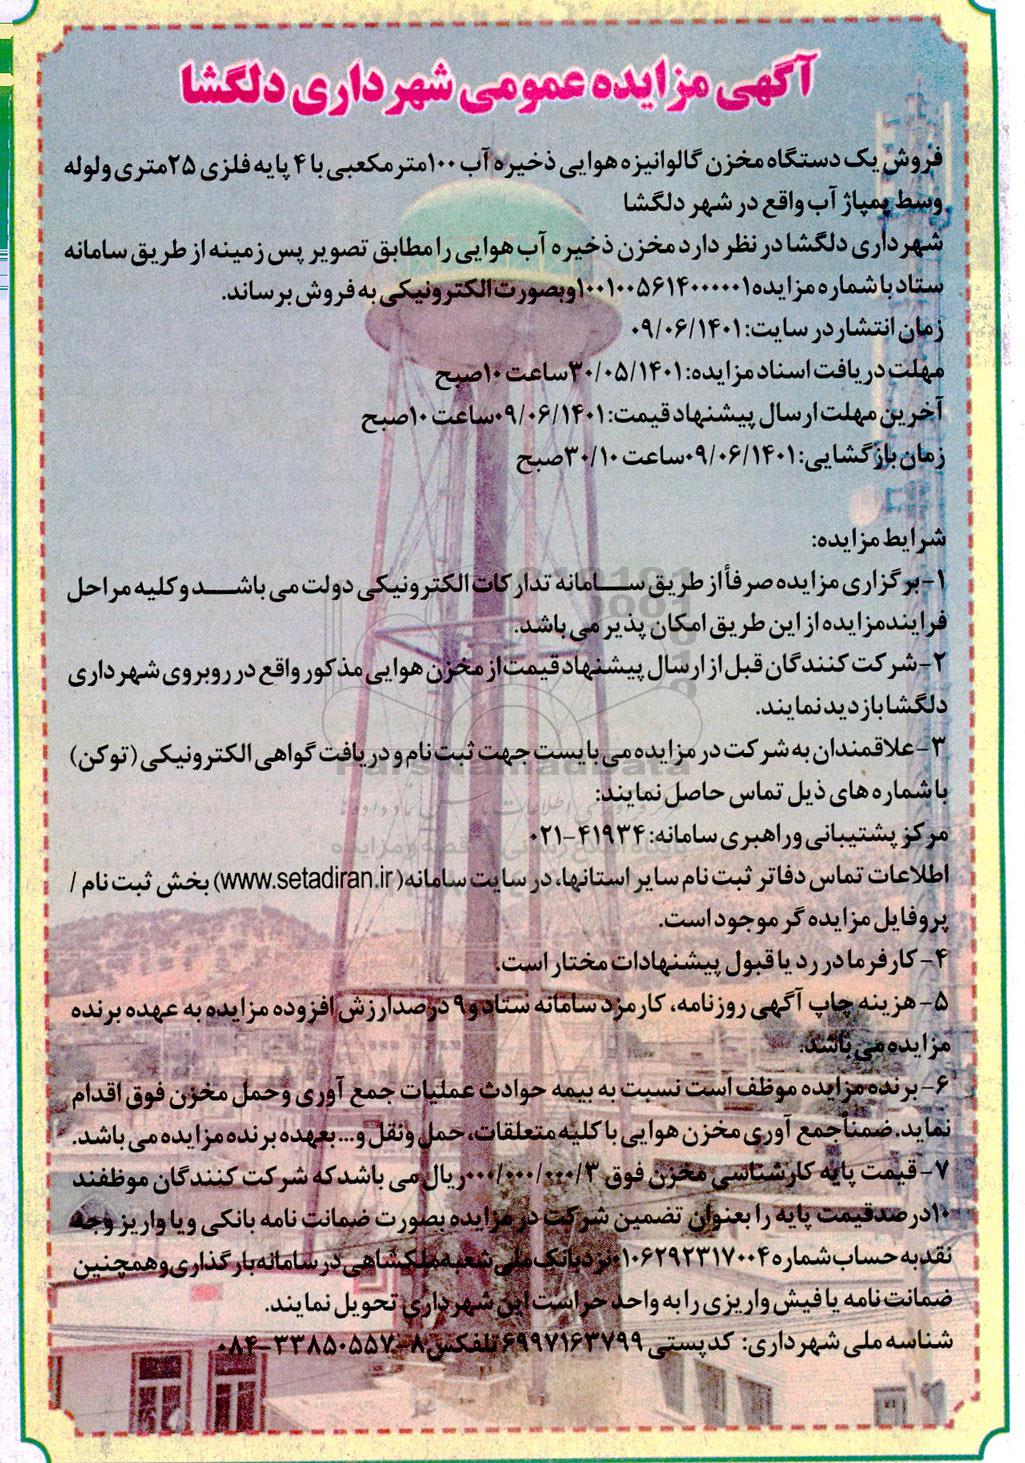 آگهی مزایده عمومی شهرداری دلگشا
فروش یک دستگاه مخزن گالوانیزه هوایی ذخیره آب ۱۰۰متر مکعبی با ۴ پایه فلزی ۲۵متری ولوله
وسط پمپاژ آب واقع در شهر دلگشا
شهرداری دلگشا در نظر دارد مخزن ذخیره آب هوایی را مطابق تصویر پس زمینه از طریق سامانه
ستاد با شماره مزایده۱۰۰۱۰۰۵۶۱۴۰۰۰۰۰۱وبصورت الکترونیکی به فروش برساند.
زمان انتشار در سایت: ۰۹/۰۶/۱۴۰۱
مهلت دریافت اسناد مزایده: ۳۰/۰۵/۱۴۰۱ساعت ۱۰صبح
آخرین مهلت ارسال پیشنهاد قیمت: ۰۹/۰۶/۱۴۰۱ساعت ۱۰صبح
زمان بازگشایی: ۰۹/۰۶/۱۴۰۱ساعت ۳۰/۱۰صبح
شرایط مزایده:
۱-برگزاری مزایده صرفاً از طریق سامانه تدارکات الکترونیکی دولت می باشد و کلیه مراحل
فرایند مزایده از این طریق امکان پذیر می باشد.
۲-شرکت کنندگان قبل از ارسال پیشنهاد قیمت از مخزن هوایی مذکور واقع در روبروی شهرداری
دلگشا بازدید نمایند.
۳-علاقمندان به شرکت در مزایده می بایست جهت ثبت نام و دریافت گواهی الکترونیکی (توکن)
با شماره های ذیل تماس حاصل نمایند:
مرکز پشتیبانی و راهبری سامانه: ۴۱۹۳۴-۰۲۱
اطلاعات تماس دفاتر ثبت نام سایر استانها، در سایت سامانه(www.setadiran.ir) بخش ثبت نام /
پروفایل مزایده گر موجود است.
۴- کارفرما در رد یا قبول پیشنهادات مختار است.
۵- هزینه چاپ آگهی روزنامه، کارمزد سامانه ستاد و۹ درصد ارزش افزوده مزایده به عهده برنده
مزایده می باشد.
۶- برنده مزایده موظف است نسبت به بیمه حوادث عملیات جمع آوری وحمل مخزن فوق اقدام
نماید. ضمناً جمع آوری مخزن هوایی با کلیه متعلقات، حمل ونقل و... بعهده برنده مزایده می باشد.
۷- قیمت پایه کارشناسی مخزن فوق ۳/۰۰۰/۰۰۰/۰۰۰ریال می باشد که شرکت کنندگان موظفند
۱۰درصد قیمت پایه را بعنوان تضمین شرکت در مزایده بصورت ضمانت نامه بانکی و یا واریز وجه
نقد به حساب شماره ۰۱۰۶۲۹۲۳۱۷۰۰۴ نزد بانک ملی شعبه ملکشاهی در سامانه بارگذاری و همچنین
ضمانت نامه یا فیش واریزی را به واحد حراست این شهرداری تحویل نمایند.
شناسه ملی شهرداری: کدپستی ۶۹۹۷۱۶۳۷۹۹ تلفکس ۸-۳۳۸۵۰۵۵۷-۰۸۴
ParsNamadData